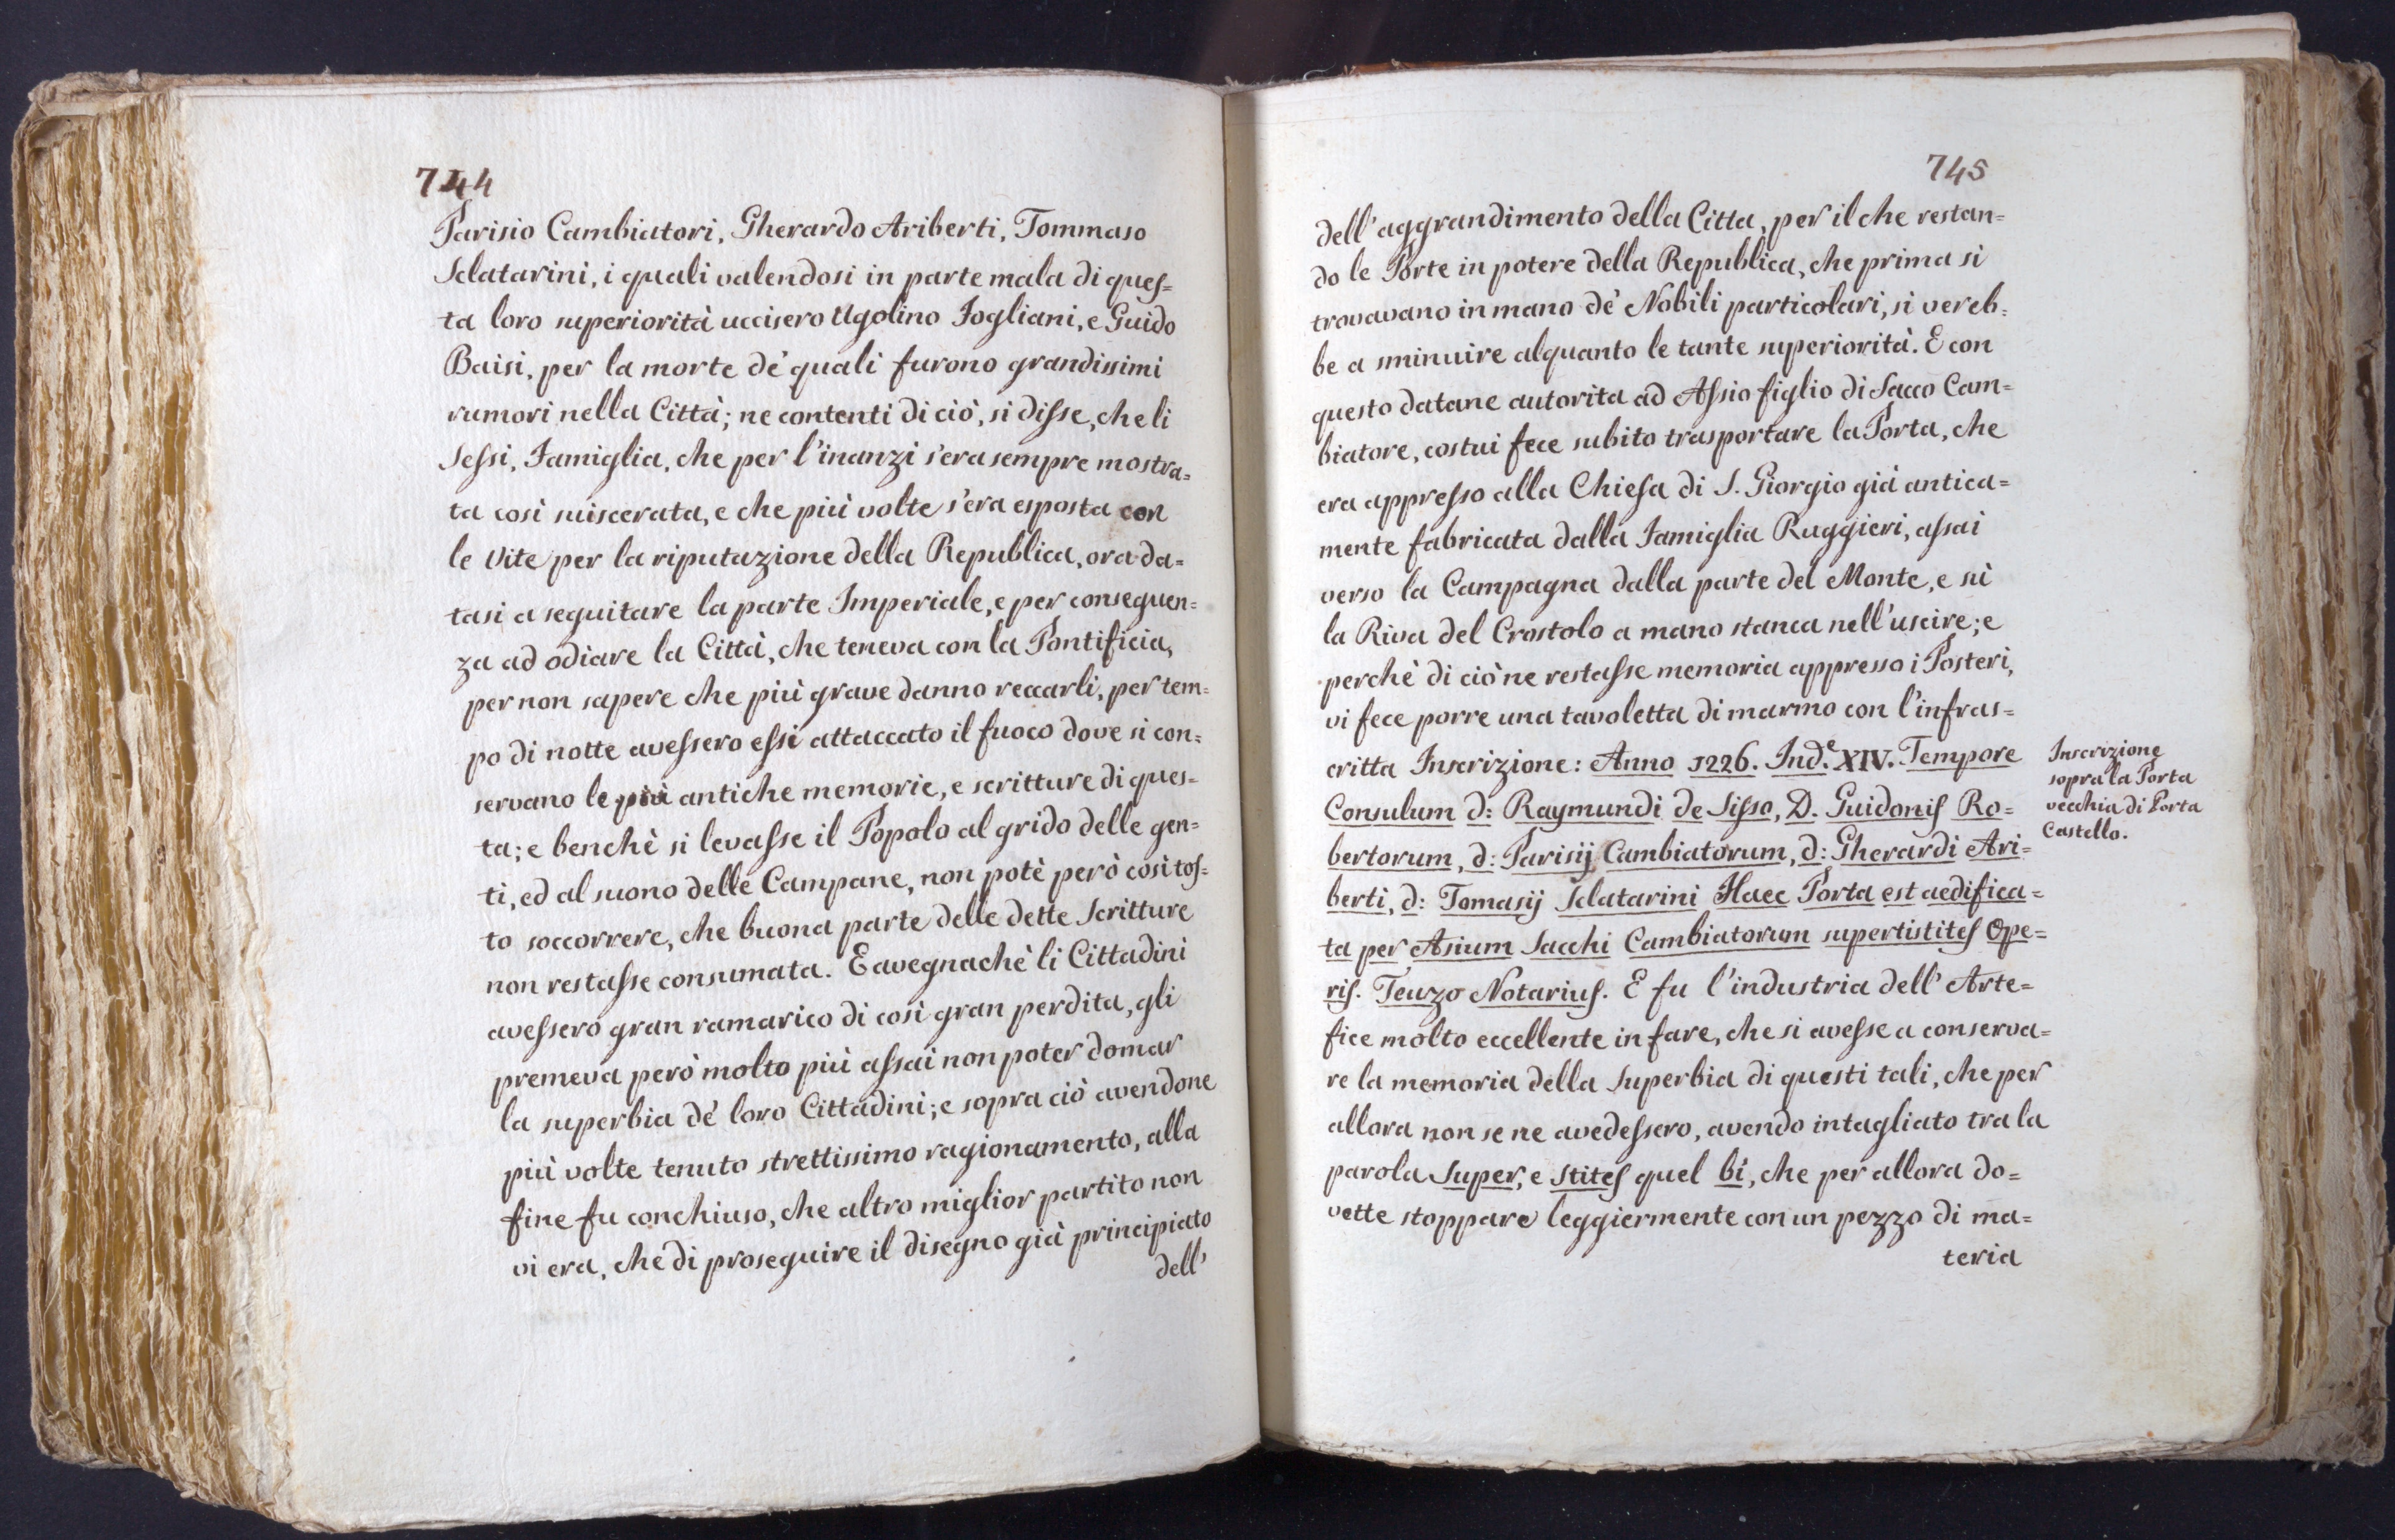 744
Parisio Cambiatori, Gherardo Ariberti, Tommaso
Sclatarini, i quali valendosi in parte mala di ques=
ta loro superiorità uccisero Ugolino Fogliani, e Guido
Baisi, per la morte de' quali furono grandissimi
rumori nella Città; ne contenti di ciò, si disse, che li
Sessi, Famiglia, che per l'inanzi s'era sempre mostra=
ta così suiscerata, e che più volte s'era esposta con
le vite per la riputazione della Republica, ora da=
tasi a seguitare la parte Imperiale, e per conseguen=
za ad odiare la Città, che teneva con la Pontificia,
per non sapere che più grave danno reccarli, per tem=
po di notte avessero essi attaccato il fuoco dove si con=
servano le più antiche memorie, e scritture di ques=
ta; e benchè si levasse il Popolo al grido delle gen=
ti, ed al suono delle Campane, non potè però così tos=
to soccorrere, che buona parte delle dette Scritture
non restasse consumata. E avegnachè li Cittadini
avessero gran ramarico di così gran perdita, gli
premeva però molto più assai non poter domar
la superbia de' loro Cittadini; e sopra ciò avendone
più volte tenuto strettissimo ragionamento, alla
fine fu conchiuso, che altro miglior partito non
vi era, che di proseguire il disegno già principiato
dell'
745
dell'aggrandimento della Citta, per il che restan=
do le Porte in potere della Republica, che prima si
trovavano in mano de' Nobili particolari, si vereb=
be a sminuire alquanto le tante superiorità. E con
questo datane autorita ad Assio figlio di Sacco Cam=
biatore, costui fece subito trasportare la Porta, che
era appresso alla Chiesa di S. Giorgio già antica=
mente fabricata dalla Famiglia Ruggieri, assai
verso la Campagna dalla parte del Monte, e sù
la Riva del Crostolo a mano stanca nell'uscire; e
perchè di ciò ne restasse memoria appresso i Posteri,
vi fece porre una tavoletta di marmo con l'infras=
critta Inscrizione: Anno 1226. Ind.e XIV. Tempore
Consulum d: Raymundi de Sisso, D. Guidonis Ro=
bertorum, d: Parisij Cambiatorum, d: Gherardi Ari=
berti, d: Tomasij Sclatarini Haec Porta est aedifica=
ta per Asium Sacchi Cambiatorum supertistites Ope=
ris. Teuzo Notarius. E fu l'industria dell'Arte=
fice molto eccellente in fare, che si avesse a conserva=
re la memoria della Superbia di questi tali, che per
allora non se ne avedessero, avendo intagliato tra la
parola Super, e stites quel bi, che per allora do=
vette stoppare leggiermente con un pezzo di ma=
teria
Inscrizione
sopra la Porta
vecchia di Porta
Castello.